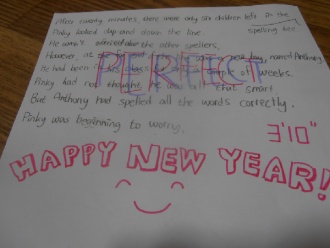 After twenty minutes, there were only six children left in the
spelling bee.
Pinky looked up and down the line
He wasn't the other spellers.
However, as new boy, named Anthony
He had been of weeks.
Pinky had not thought he was all that smart
But Anthony had spelled all the words correctly.
Pinky was beginning to worry.
PERFECT
3'10"
HAPPY NEW YEAR!